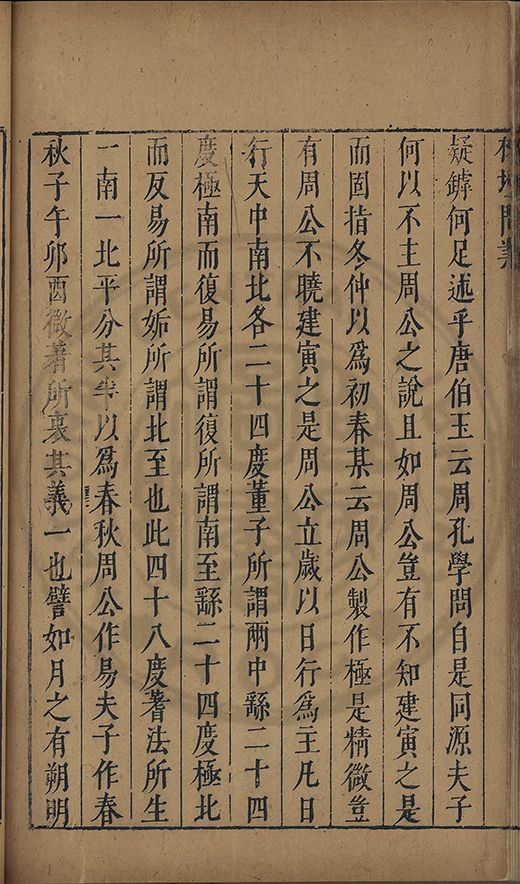 榕壇問業
疑鏬何足述乎唐伯玉云周孔學問自是同源夫子
何以不主周公之說且如周公豈有不知建寅之是
而固指冬仲以爲初春某云周公製作極是精微豈
有周公不曉建寅之是周公立歲以日行爲主凡日
行天中南北各二十四度董子所謂兩中繇二十四
度極南而復易所謂復所謂南至繇二十四度極北
而反易所謂姤所謂北至也此四十八度蓍法所生
一南一北平分其半以爲春秋周公作易夫子作春
秋子午卯酉微著所裏其義一也譬如月之有朔明